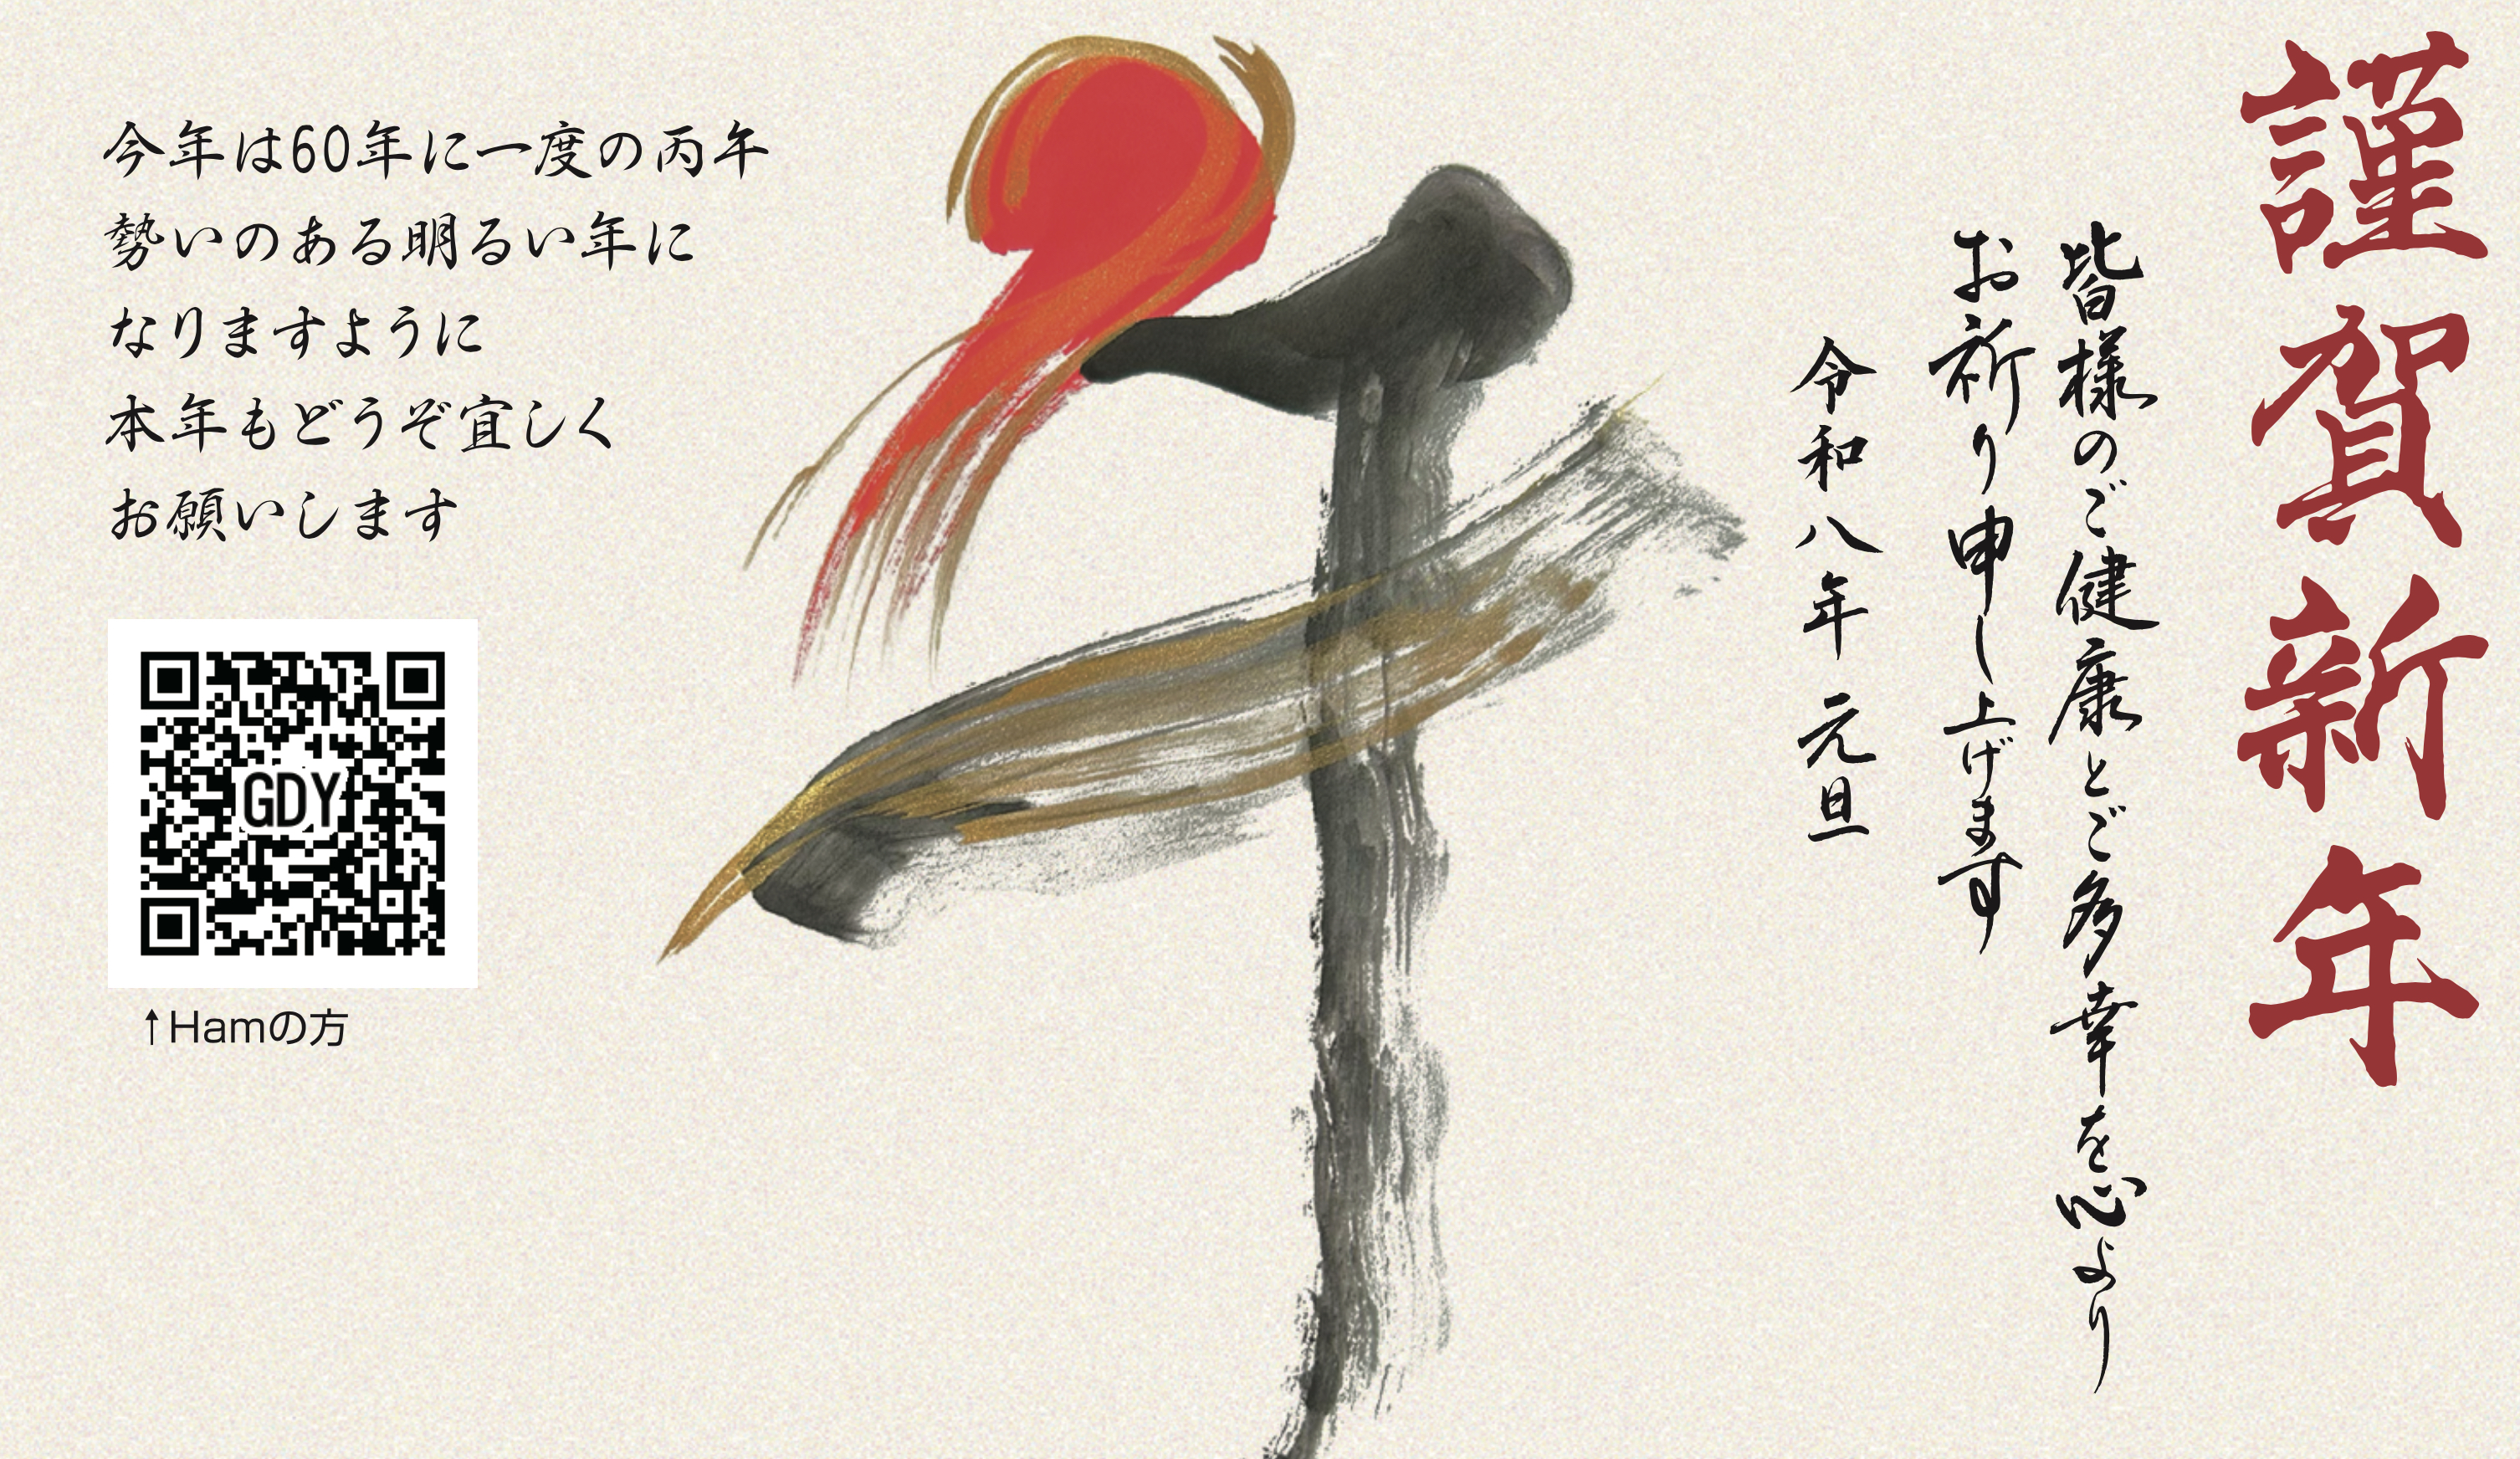 謹賀新年
皆様のご健康とご多幸を心より
お祈り申し上げます
令和八年 元旦
午
今年は60年に一度の丙午
勢いのある明るい年に
なりますように
本年もどうぞ宜しく
お願いします
GDY
↑Hamの方